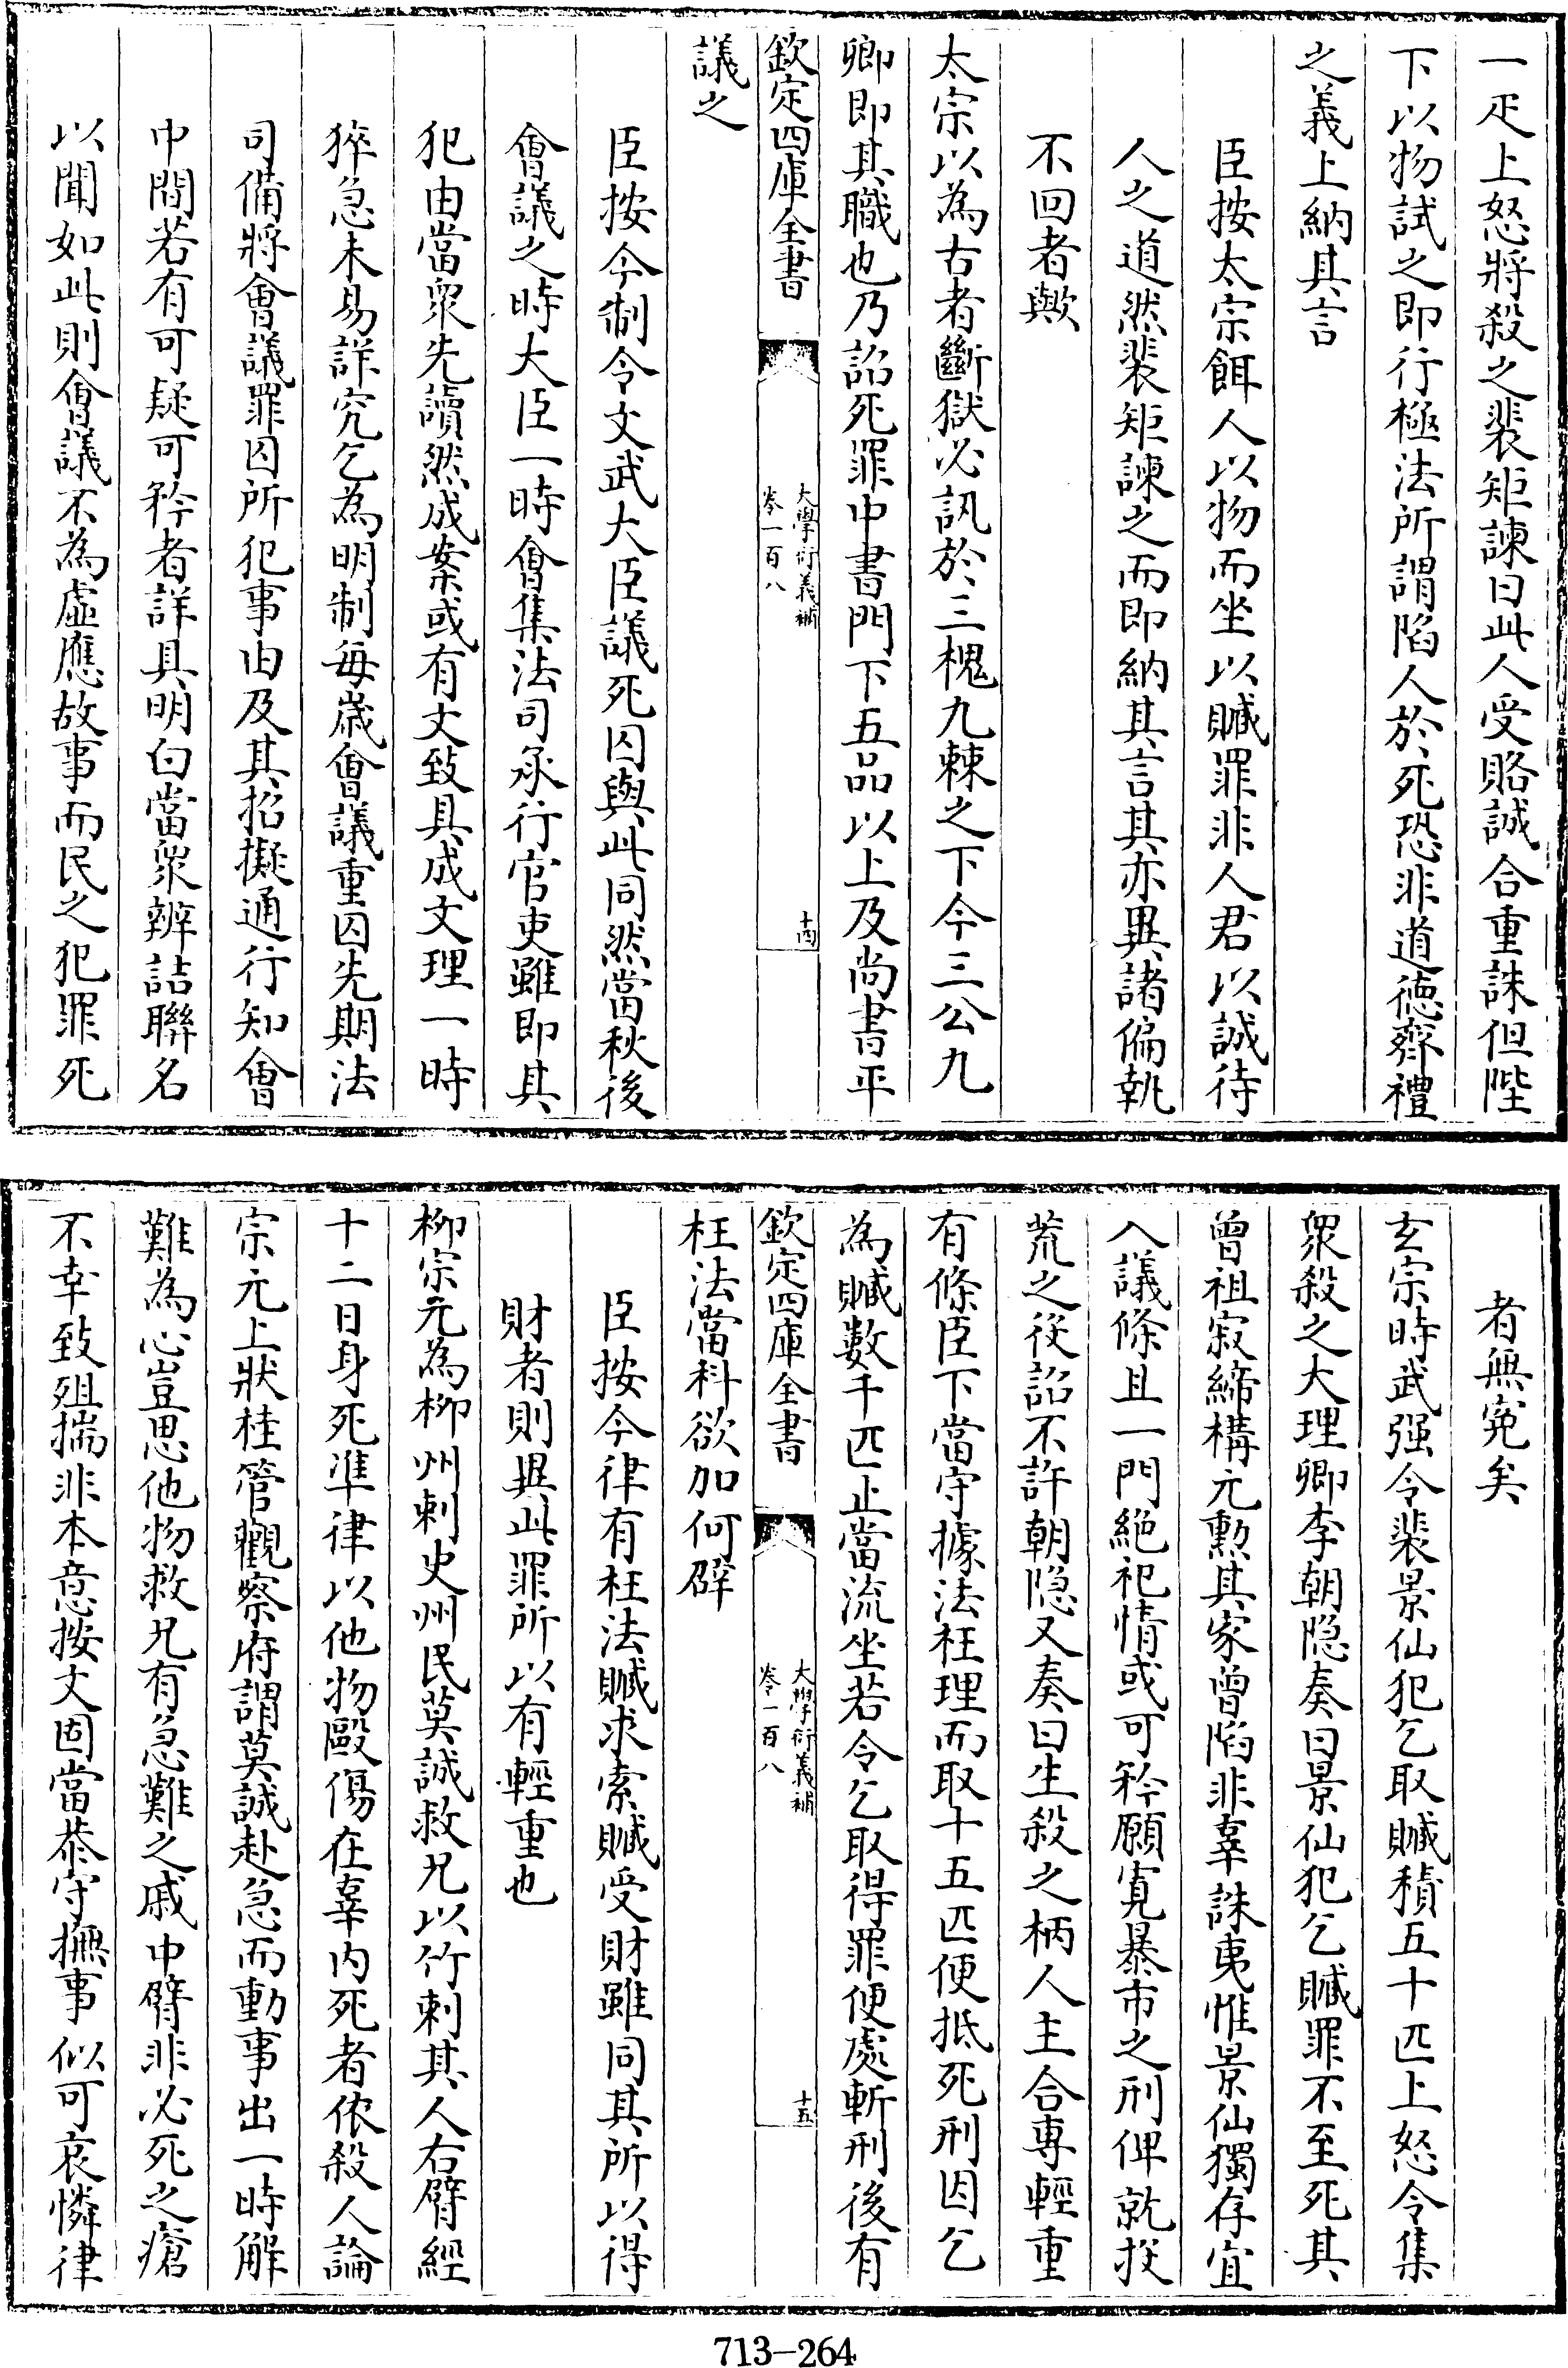 一疋上怒將殺之裴矩諫曰此人受賂誠合重誅但陛
下以物試之即行極法所謂陷人於死恐非道德齊禮
之義上納其言
臣按太宗餌人以物而坐以贓罪非人君以誠待
人之道然裴矩諫之而即納其言其亦異諸偏執
不回者歟
太宗以為古者斷獄必訊於三槐九棘之下今三公九
卿即其職也乃詔死罪中書門下五品以上及尚書平
欽定四庫全書
大學衍義補
卷一百八
十四
議之
臣按今制令文武大臣議死囚與此同然當秋後
會議之時大臣一時會集法司承行官吏雖即其
犯由當眾先讀然成案或有文致具成文理一時
猝急未易詳究乞為明制每歲會議重囚先期法
司備將會議罪囚所犯事由及其招擬通行知會
中間若有可疑可矜者詳具明白當眾辨詰聯名
以聞如此則會議不為虛應故事而民之犯罪死
者無寃矣
玄宗時武强令裴景仙犯乞取贓積五十匹上怒令集
眾殺之大理卿李朝隐奏曰景仙犯乞贓罪不至死其
曾祖寂締構元勲其家曾陷非辜誅夷惟景仙獨存宜
入議條且一門絕祀情或可矜願寛暴市之刑俾就投
荒之役詔不許朝隐又奏曰生殺之柄人主合專輕重
有條臣下當守據法枉理而取十五匹便抵死刑因乞
為贓數千匹止當流坐若令乞取得罪便處斬刑後有
欽定四庫全書
大學衍義補
卷一百八
十五
枉法當科欲加何辟
臣按今律有枉法贓求索贓受財雖同其所以得
財者則異此罪所以有輕重也
柳宗元為柳州刺史州民莫誠救兄以竹刺其人右臂經
十二日身死準律以他物毆傷在辜内死者依殺人論
宗元上狀桂管觀察府謂莫誠赴急而動事出一時解
難為心豈思他物救兄有急難之戚中臂非必死之瘡
不幸致殂揣非本意按文固當恭守撫事似可哀憐律
713-264